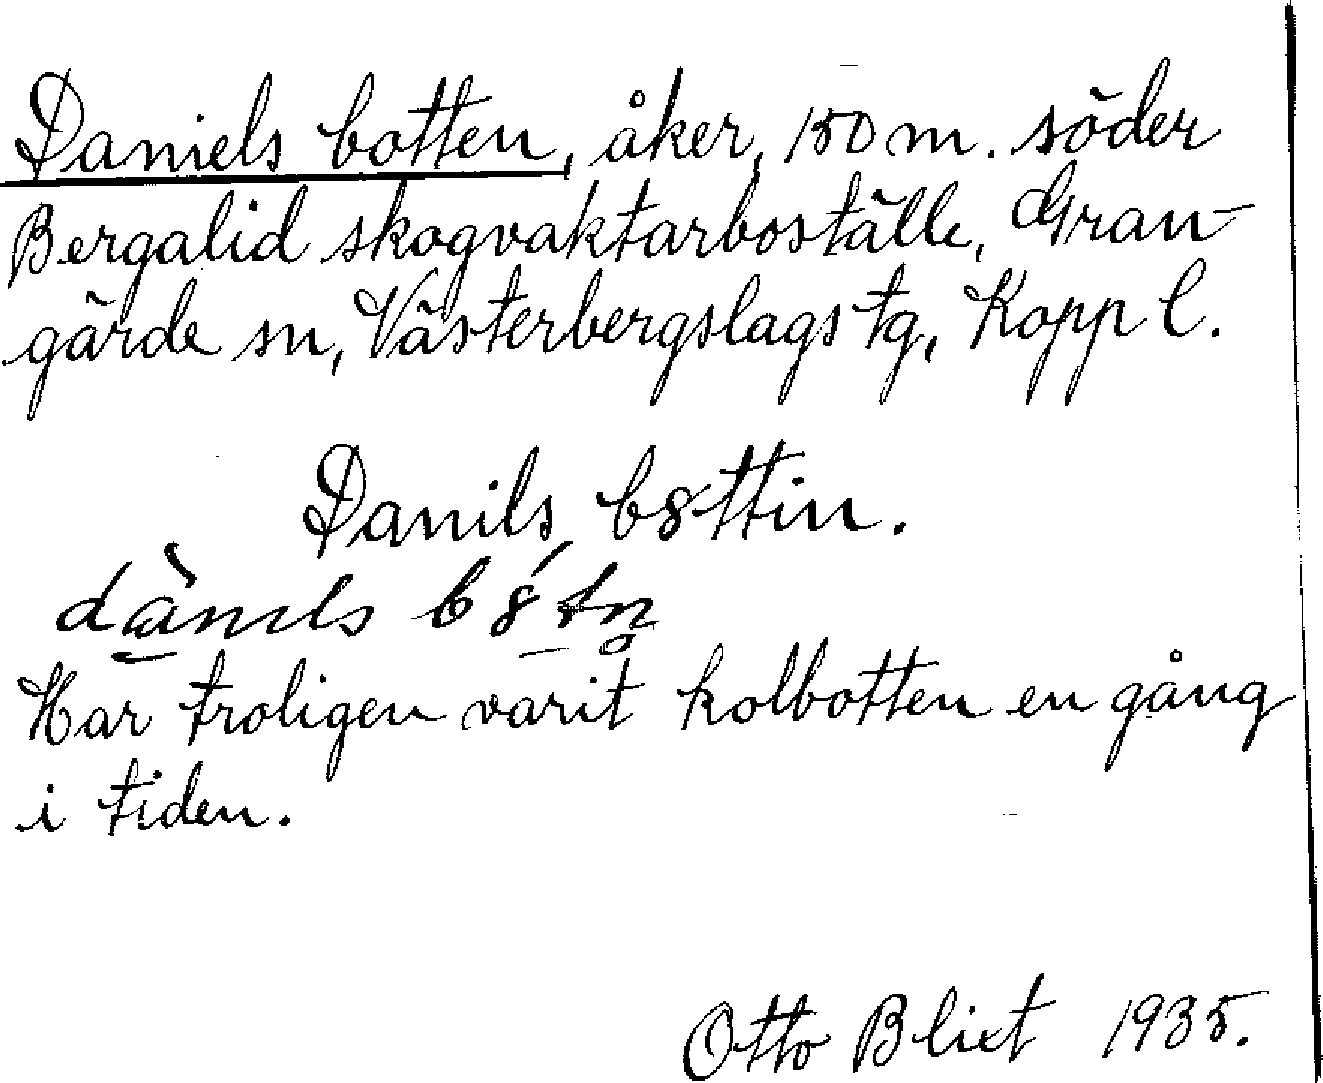 Daniels botten, åker, 150 m. söder
Bergalid skogvaktarboställe, Gran-
gärde sn, Västerbergslags tg, Kopp l.
Danils b8ttin.
Har troligen varit kolbotten en gång
i tiden.
Otto Blixt 1935.